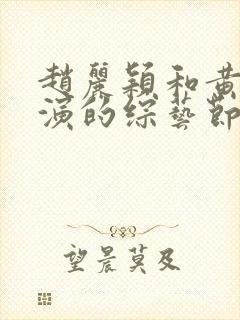 趙麗穎和黃
演的綜藝節
望晨莫及